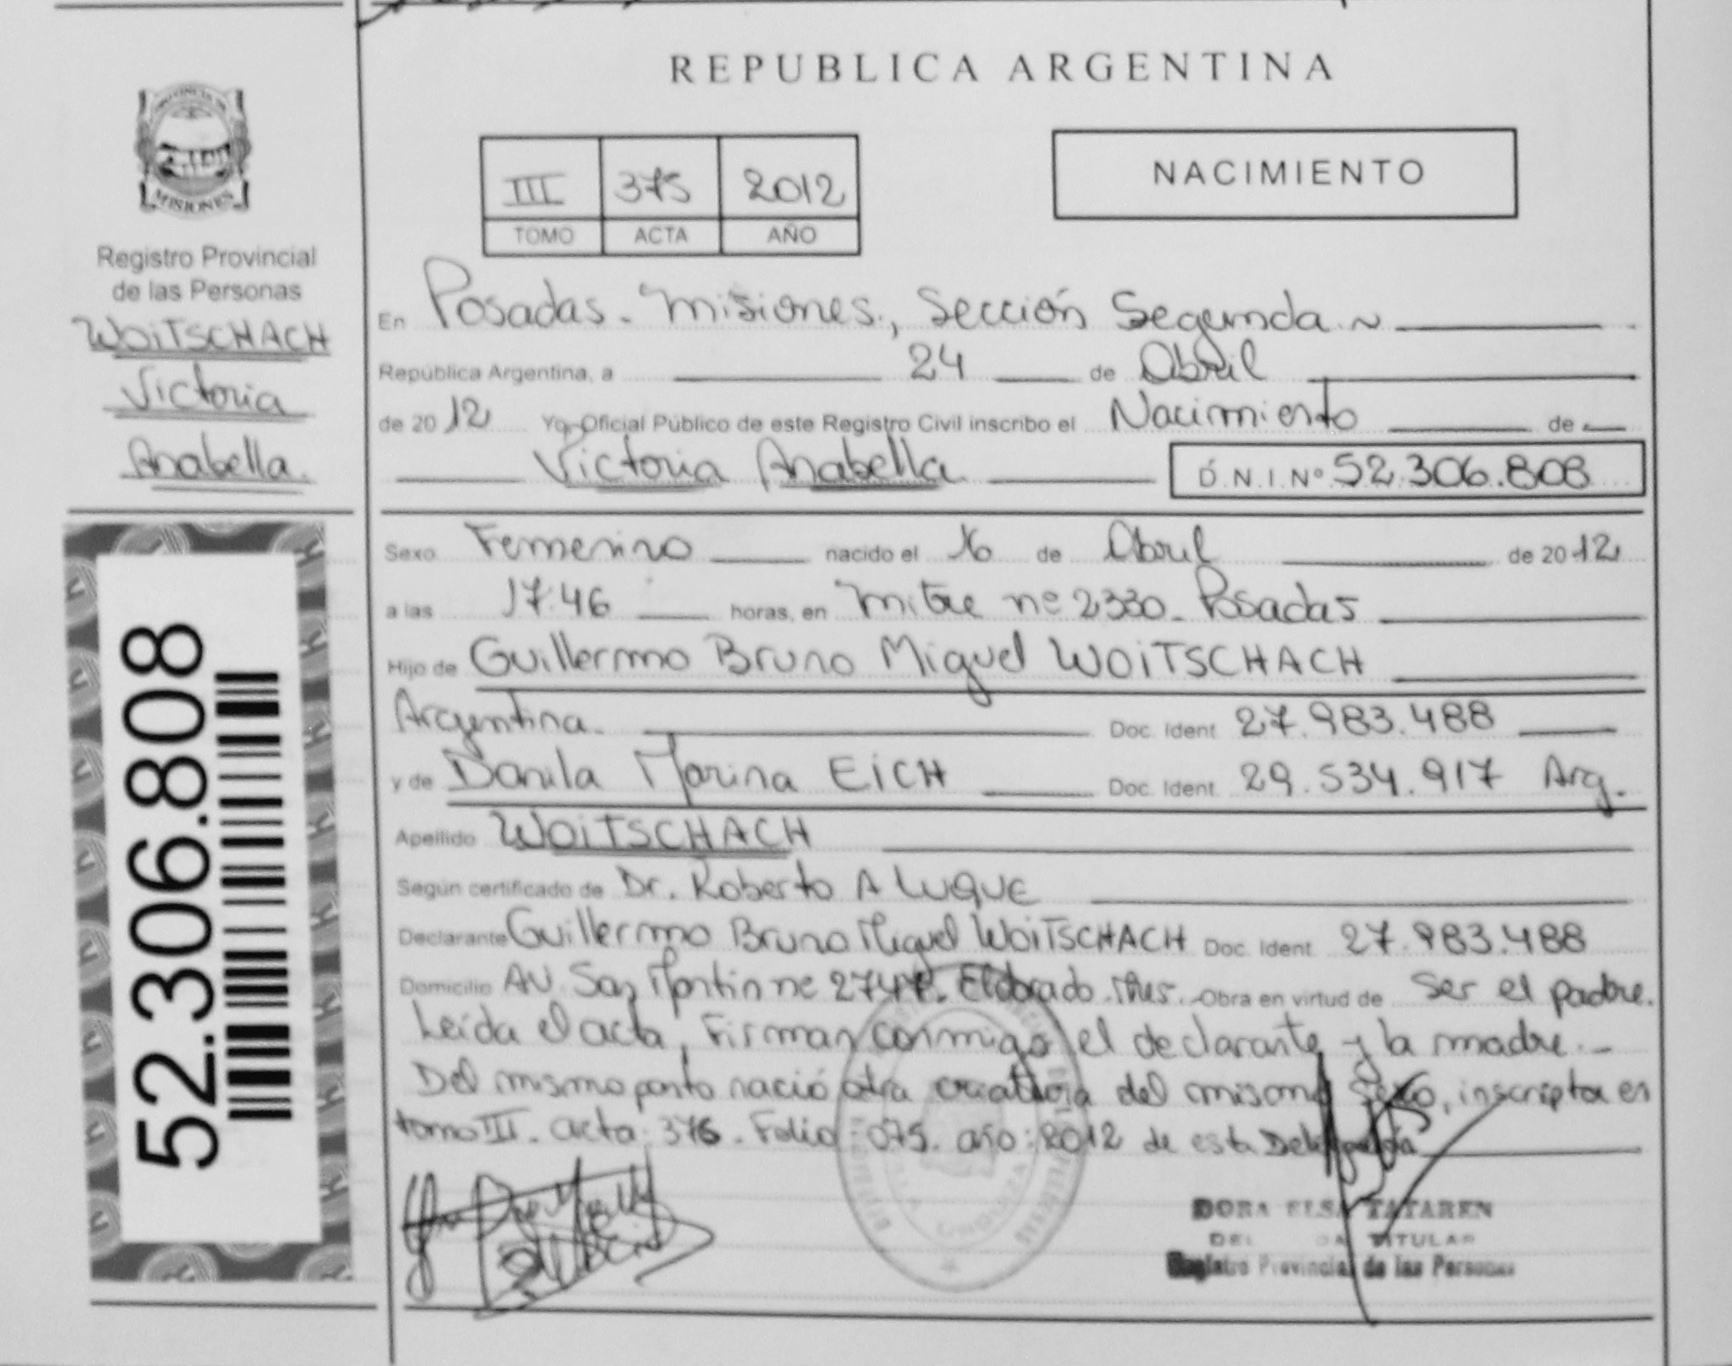 REPUBLICA ARGENTINA
MISIONES
Registro Provincial
de las Personas
WOITSCHACH
Victoria
Anabella.
52.306.808
III 375 2012
TOMO ACTA AÑO
NACIMIENTO
En Posadas - Misiones, Sección Segunda
República Argentina, a 24 de Abril
de 2012 Yo, Oficial Público de este Registro Civil inscribo el Nacimiento de
Victoria Anabella D.N.I. Nº 52.306.808
Sexo Femenino nacido el 16 de Abril de 2012
a las 17.46 horas, en Mitre nº 2330 - Posadas
Hijo de Guillermo Bruno Miguel WOITSCHACH
Argentina. Doc. Ident. 27.983.488
y de Danila Marina EICH Doc. Ident. 29.534.917 Arg.
Apellido WOITSCHACH
Según certificado de Dr. Roberto A LUQUE
Declarante Guillermo Bruno Miguel WOITSCHACH Doc. Ident. 27.983.488
Domicilio AV. San Martin nº Eldorado. Mnes. Obra en virtud de Ser el padre.
Leída el acta, Firman conmigo el declarante y la madre.-
Del mismo parto nació otra criatura del mismo sexo, inscripta en
tomo III. acta: 376. Folio: 075. año: 2012 de esta Delegación
DORA ELSA TATAREN
TITULAR
Registro Provincial de las Personas